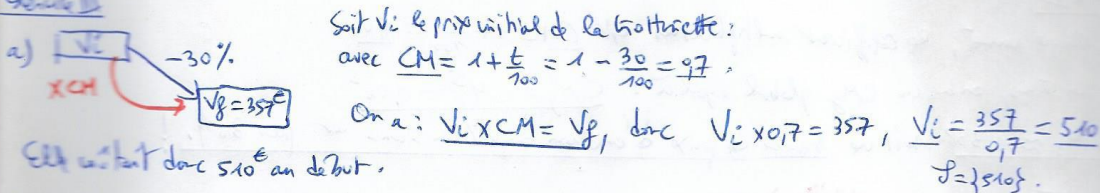 a) Vi -30% Vf = 357€
× CM
Soit Vi le prix initial de la trottinette :
avec CM = 1 + t/100 = 1 - 30/100 = 0,7.
On a : Vi × CM = Vf, donc Vi × 0,7 = 357, Vi = 357/0,7 = 510
S = {510}.
Elle coûtait donc 510€ au début.